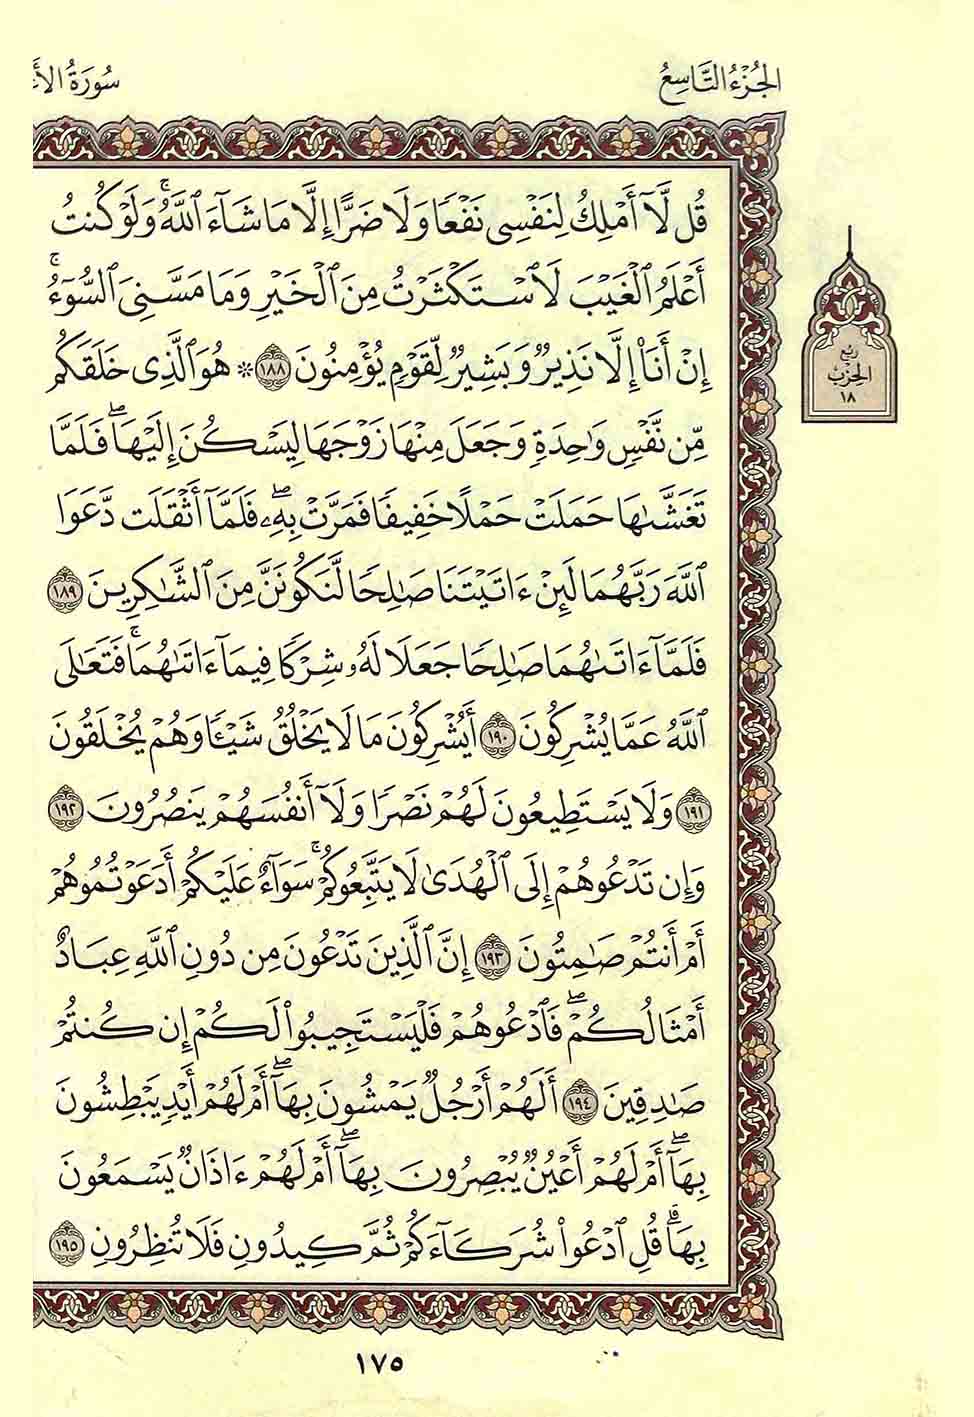 الجزء التاسع
سورة الأع
قُل لَّآ أَمْلِكُ لِنَفْسِى نَفْعًا وَلَا ضَرًّا إِلَّا مَا شَآءَ ٱللَّهُ ۚ وَلَوْ كُنتُ
أَعْلَمُ ٱلْغَيْبَ لَٱسْتَكْثَرْتُ مِنَ ٱلْخَيْرِ وَمَا مَسَّنِىَ ٱلسُّوٓءُ ۚ
إِنْ أَنَا۠ إِلَّا نَذِيرٌ وَبَشِيرٌ لِّقَوْمٍ يُؤْمِنُونَ ١٨٨ ۞ هُوَ ٱلَّذِى خَلَقَكُم
ربع
الحزب
١٨
مِّن نَّفْسٍ وَٰحِدَةٍ وَجَعَلَ مِنْهَا زَوْجَهَا لِيَسْكُنَ إِلَيْهَا ۖ فَلَمَّا
تَغَشَّىٰهَا حَمَلَتْ حَمْلًا خَفِيفًا فَمَرَّتْ بِهِۦ ۖ فَلَمَّآ أَثْقَلَت دَّعَوَا
ٱللَّهَ رَبَّهُمَا لَئِنْ ءَاتَيْتَنَا صَٰلِحًا لَّنَكُونَنَّ مِنَ ٱلشَّٰكِرِينَ ١٨٩
فَلَمَّآ ءَاتَىٰهُمَا صَٰلِحًا جَعَلَا لَهُۥ شُرَكَآءَ فِيمَآ ءَاتَىٰهُمَا ۚ فَتَعَٰلَى
ٱللَّهُ عَمَّا يُشْرِكُونَ ١٩٠ أَيُشْرِكُونَ مَا لَا يَخْلُقُ شَيْـًٔا وَهُمْ يُخْلَقُونَ
١٩١ وَلَا يَسْتَطِيعُونَ لَهُمْ نَصْرًا وَلَآ أَنفُسَهُمْ يَنصُرُونَ ١٩٢
وَإِن تَدْعُوهُمْ إِلَى ٱلْهُدَىٰ لَا يَتَّبِعُوكُمْ ۚ سَوَآءٌ عَلَيْكُمْ أَدَعَوْتُمُوهُمْ
أَمْ أَنتُمْ صَٰمِتُونَ ١٩٣ إِنَّ ٱلَّذِينَ تَدْعُونَ مِن دُونِ ٱللَّهِ عِبَادٌ
أَمْثَالُكُمْ ۖ فَٱدْعُوهُمْ فَلْيَسْتَجِيبُوا۟ لَكُمْ إِن كُنتُمْ
صَٰدِقِينَ ١٩٤ أَلَهُمْ أَرْجُلٌ يَمْشُونَ بِهَآ ۖ أَمْ لَهُمْ أَيْدٍ يَبْطِشُونَ
بِهَآ ۖ أَمْ لَهُمْ أَعْيُنٌ يُبْصِرُونَ بِهَآ ۖ أَمْ لَهُمْ ءَاذَانٌ يَسْمَعُونَ
بِهَا ۗ قُلِ ٱدْعُوا۟ شُرَكَآءَكُمْ ثُمَّ كِيدُونِ فَلَا تُنظِرُونِ ١٩٥
١٧٥